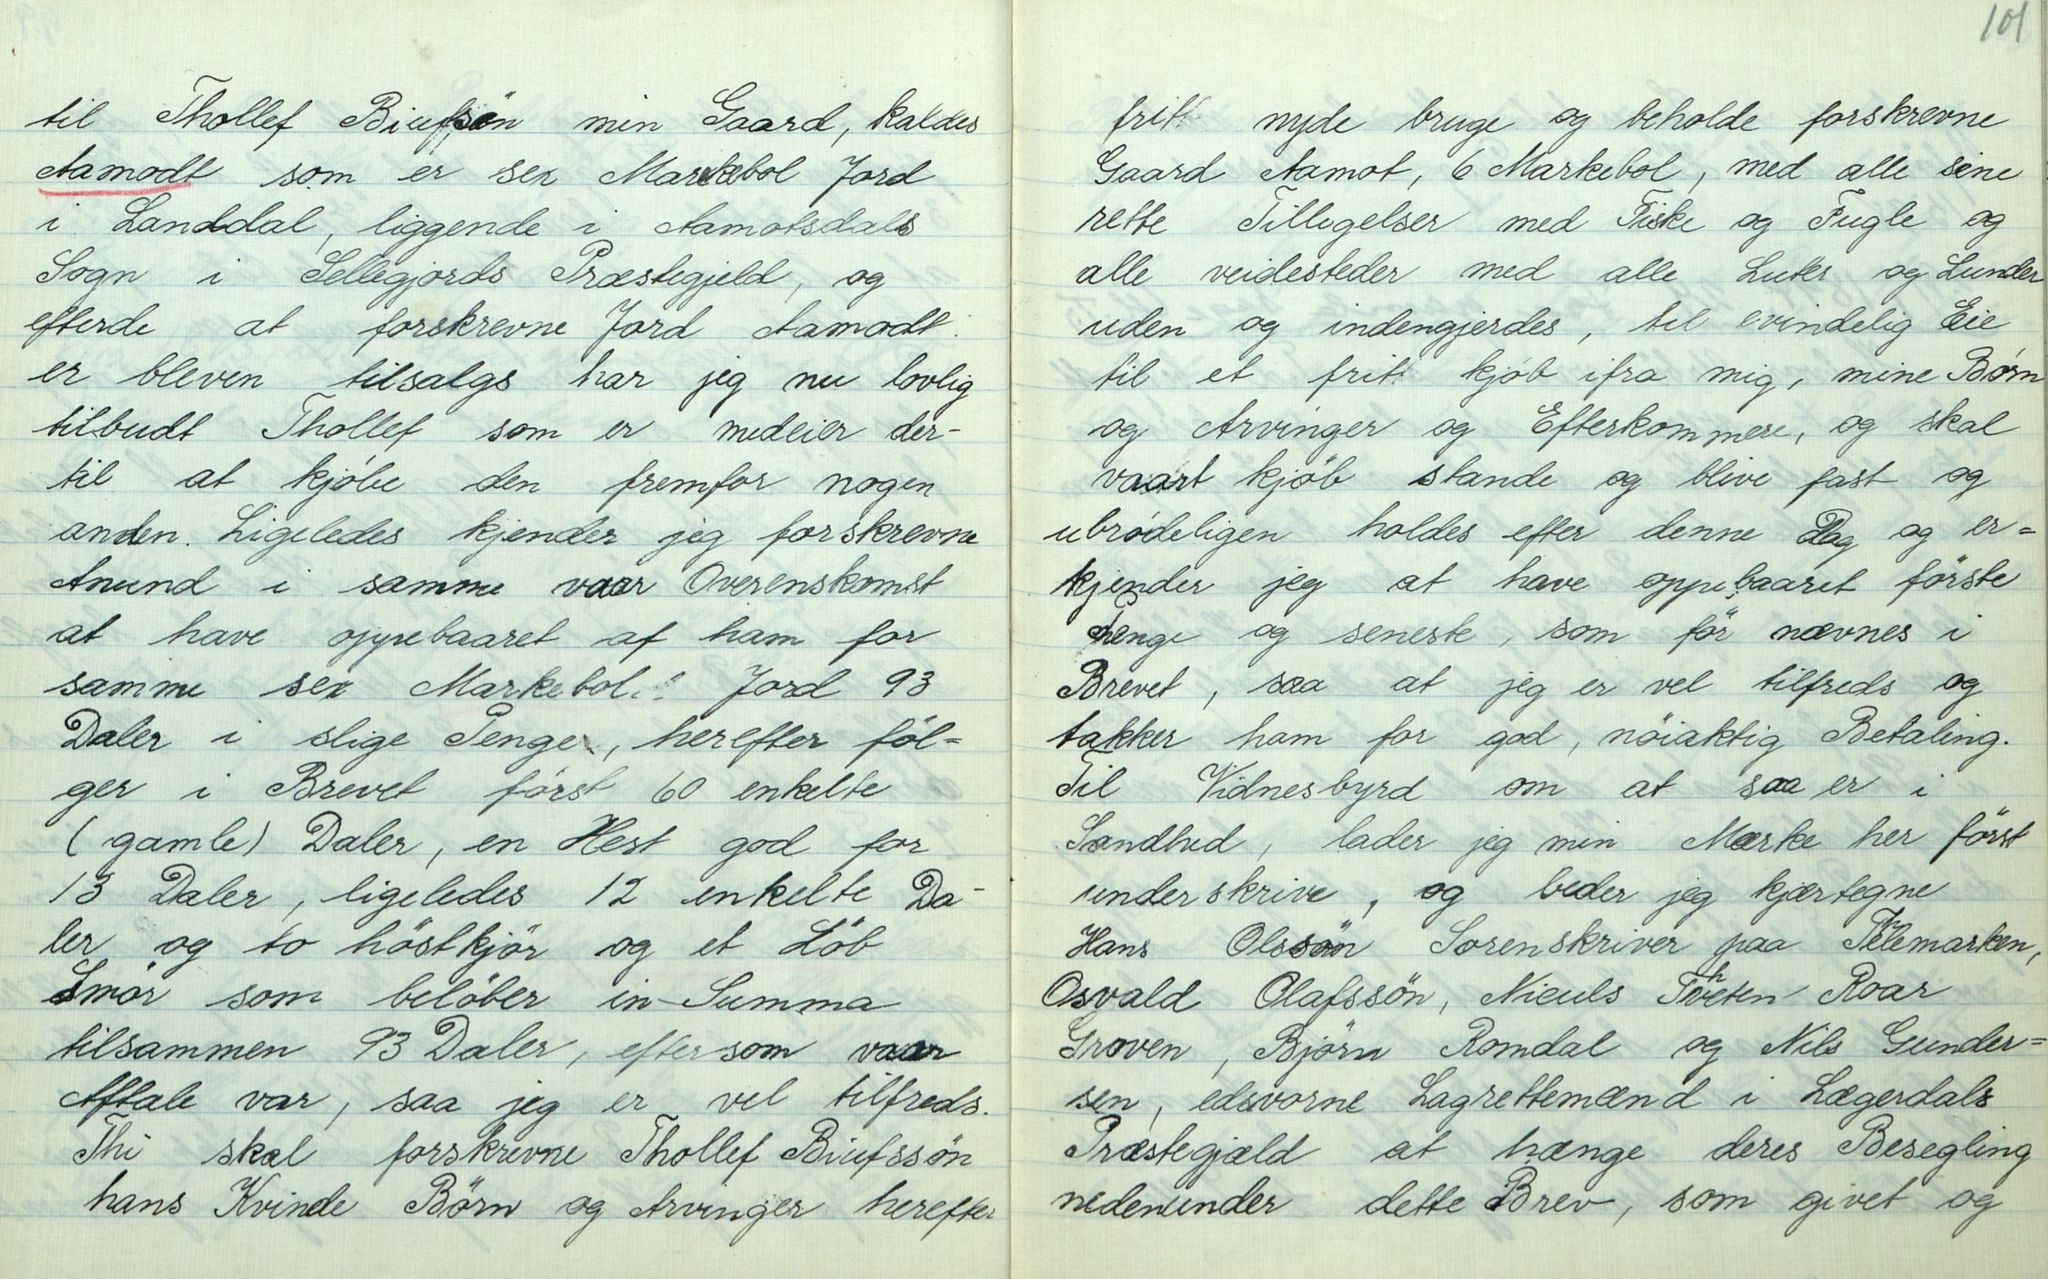 til Thollef Biufsøn min Gaard, kaldes
Aamodt som er sex Markebol Jord
i Landdal, liggende i Aamotsdals
Sogn i Sellegjords Præstegjeld, og
efterde at forskrevne Jord Aamodt
er bleven tilsalgs har jeg nu lovlig
tilbudt Thollef som er medeier der-
til at kjøbe den fremfor nogen
anden. Ligeledes kjender jeg forskrevne
Anund i samme vaar Overenskomst
at have oppebaaret af ham for
samme sex Markebol Jord 93
Daler i slige Penge, herefter föl=
ger i Brevet først 60 enkelte
(gamle) Daler, en Hest god for
13 Daler, ligeledes 12 enkelte Da-
ler og to höstkjör og et Löb
Smör som belöber in-Summa
tilsammen 93 Daler, eftersom vaar
Aftale var, saa jeg er vel tilfreds.
Thi skal forskrevne Thollef Biufssön
hans Kvinde Børn og Arvinger herefter
101
frit nyde bruge og beholde forskrevne
Gaard Aamot, 6 Markebol, med alle sine
rette Tilligelser med Fiske og Fugle og
alle veidesteder med alle Luter og Lunder
uden og indengjerdes, til evindelig Eie
til et frit kjöb ifra mig, mine Børn
og Arvinger og Efterkommere, og skal
vaart kjöb stande og blive fast og
ubrødeligen holdes efter denne Dag og er=
kjender jeg at have oppebaaret förste
Penge og seneste, som för nævnes i
Brevet, saa at jeg er vel tilfreds og
takker ham for god, nöiaktig Betaling.
Til Vidnesbyrd om at saa er i
Sandhed, lader jeg min Mærke her först
underskrive, og beder jeg kjærtegne
Hans Olssön Sorenskriver paa Telemarken,
Osvald Olafssön, Nieuls Tveten Roar
Groven, Björn Romdal og Nils Gunder=
sen, edsvorne Lagrettemænd i Lægerdals
Præstegjæld at hænge deres Besegling
nedenunder dette Brev, som givet og